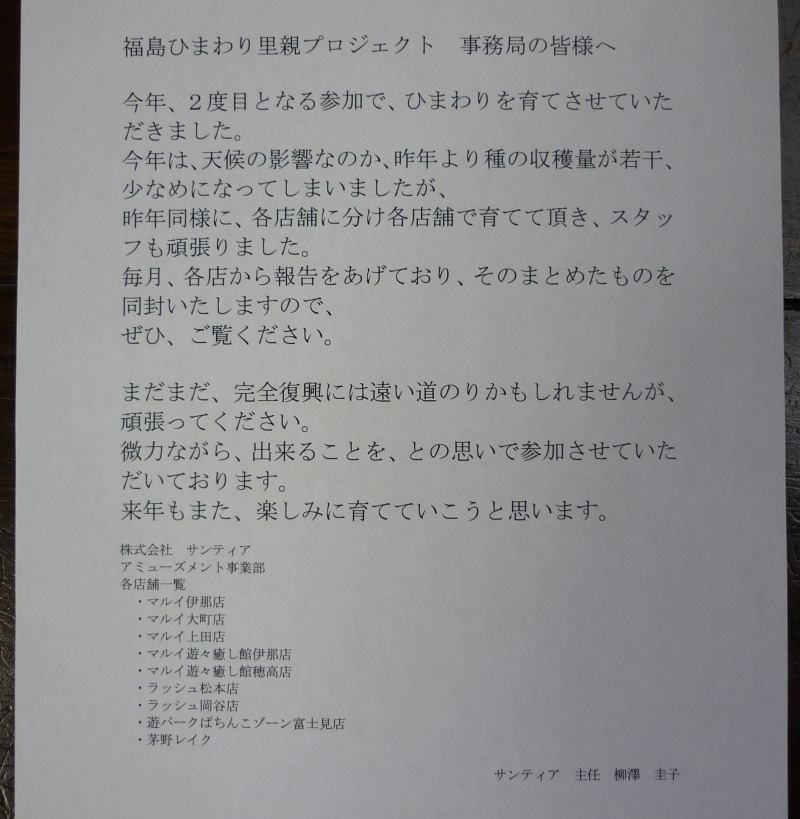 福島ひまわり里親プロジェクト　事務局の皆様へ
今年、２度目となる参加で、ひまわりを育てさせていた
だきました。
今年は、天候の影響なのか、昨年より種の収穫量が若干、
少なめになってしまいましたが、
昨年同様に、各店舗に分け各店舗で育てて頂き、スタッ
フも頑張りました。
毎月、各店から報告をあげており、そのまとめたものを
同封いたしますので、
ぜひ、ご覧ください。
まだまだ、完全復興には遠い道のりかもしれませんが、
頑張ってください。
微力ながら、出来ることを、との思いで参加させていた
だいております。
来年もまた、楽しみに育てていこうと思います。
株式会社　サンティア
アミューズメント事業部
各店舗一覧
・マルイ伊那店
・マルイ大町店
・マルイ上田店
・マルイ遊々癒し館伊那店
・マルイ遊々癒し館穂高店
・ラッシュ松本店
・ラッシュ岡谷店
・遊パークぱちんこゾーン富士見店
・茅野レイク
サンティア　主任　柳澤　圭子